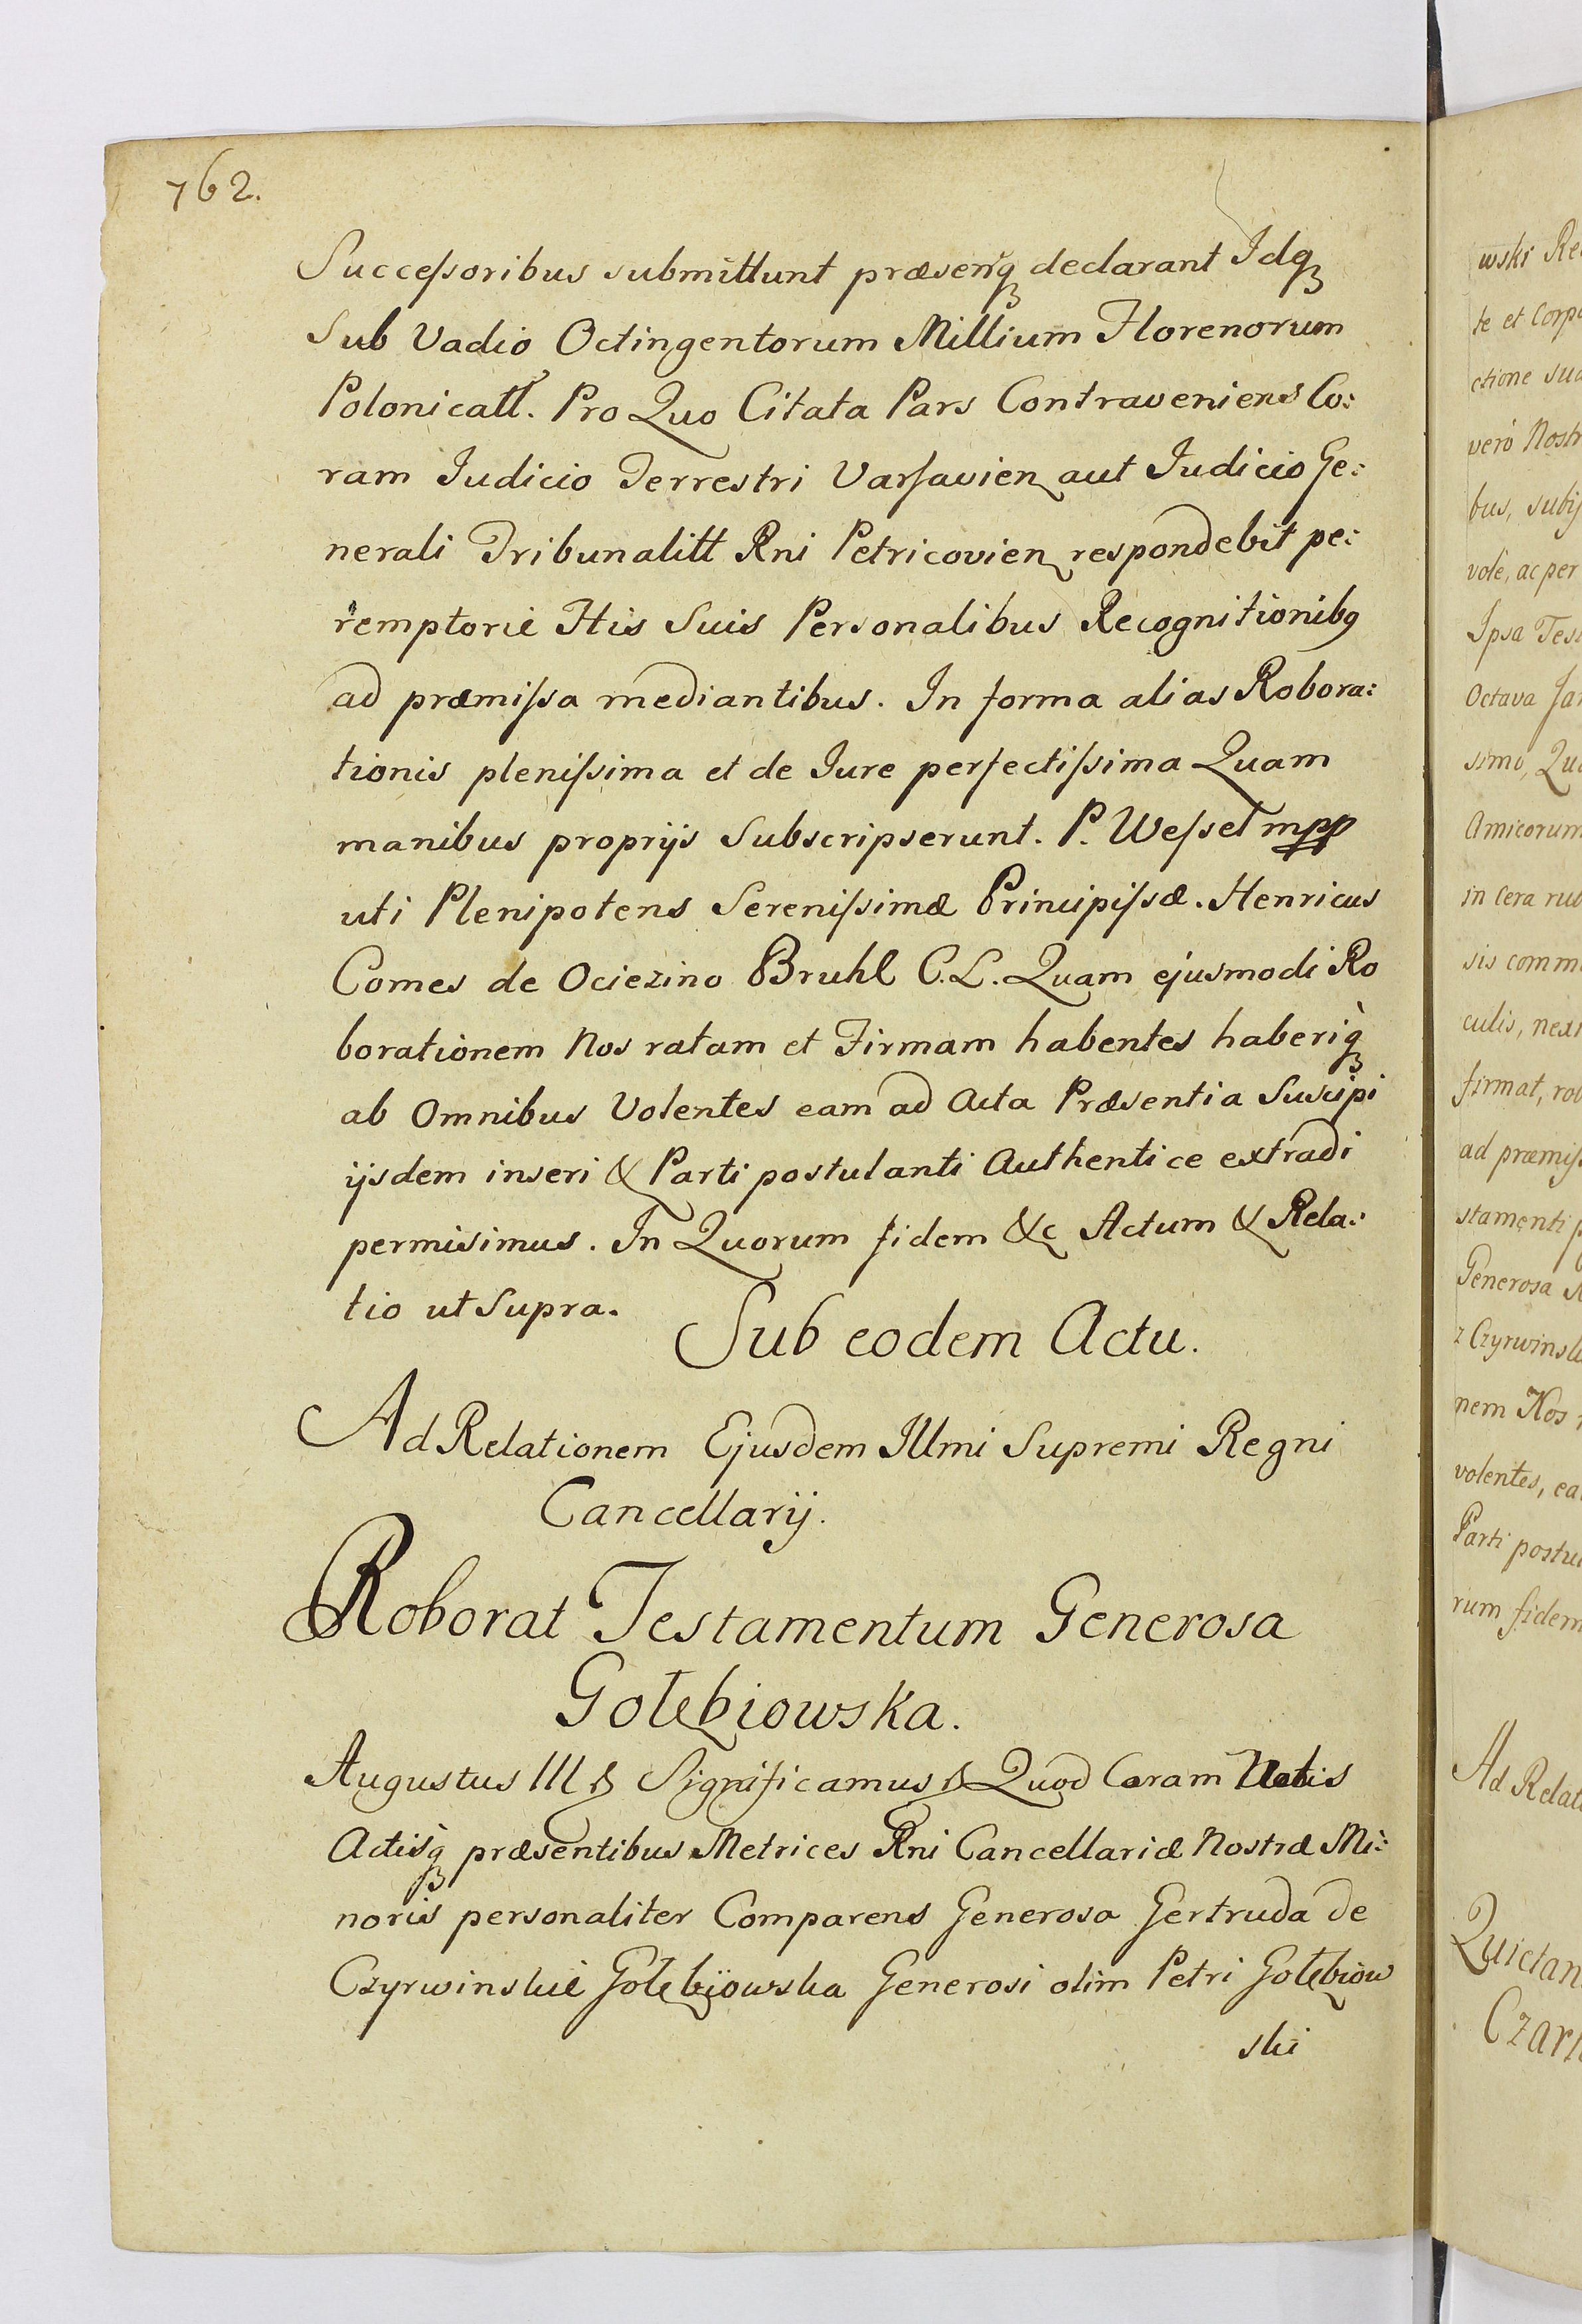 762.
Succeſsoribus submittunt præsentq́ declarant Idq́
Sub Vadio Octingentorum Millium Florenorum
Polonicatt. Pro Quo Citata Pars Contraveniens Co:
ram Judicio Terrestri Varſavien aut Judicio Ge:
nerali Tribunalitt Rni Petricovien respondebit pe:
remptorie His Suis Personalibus Recognitionibq
ad præmiſsa mediantibus. In forma alias Robora:
tionis pleniſsima et de Jure perfectiſsima Quam
manibus proprijs Subscripserunt. P. Weſsel mpp
uti Plenipotens Sereniſsimæ Principiſsæ. Henricus
Comes de Ociezino Bruhl C.L. Quam ejusmodi Ro
borationem Nos ratam et Firmam habentes haberiq̀
ab Omnibus Volentes eam ad Acta Præsentia Suscipi
ijsdem inseri & Parti postulanti Authentice extradi
permisimus. In Quorum fidem &c Actum & Rela:
tio ut Supra.
Sub eodem Actu.
Ad Relationem Ejusdem Illmi Supremi Regni
Cancellarij.
Roborat Testamentum Generosa
Gołębiowska.
Augustus III & Significamus & Quod Coram Nobis
Actisq̀ præsentibus Metrices Rni Cancellariæ Nostræ Mi:
noris personaliter Comparens Generosa Gertruda de
Czyrwinskie Gołębiowska Generosi olim Petri Gołębiow
ski
wski
te et Corp
ctione sua
verò Nostr
bus, subij
vole, ac per
Ipsa Test
Octava Jan
simo, Qua
Amicorum
in cera rub
sis comm
culis, nexi
firmat, rob
ad præmiſs
stamenti p
Generosa
z Czyrwinsk
nem Nos
volentes, ea
Parti postul
rum fidem
Ad Relati
Quietan
Czar